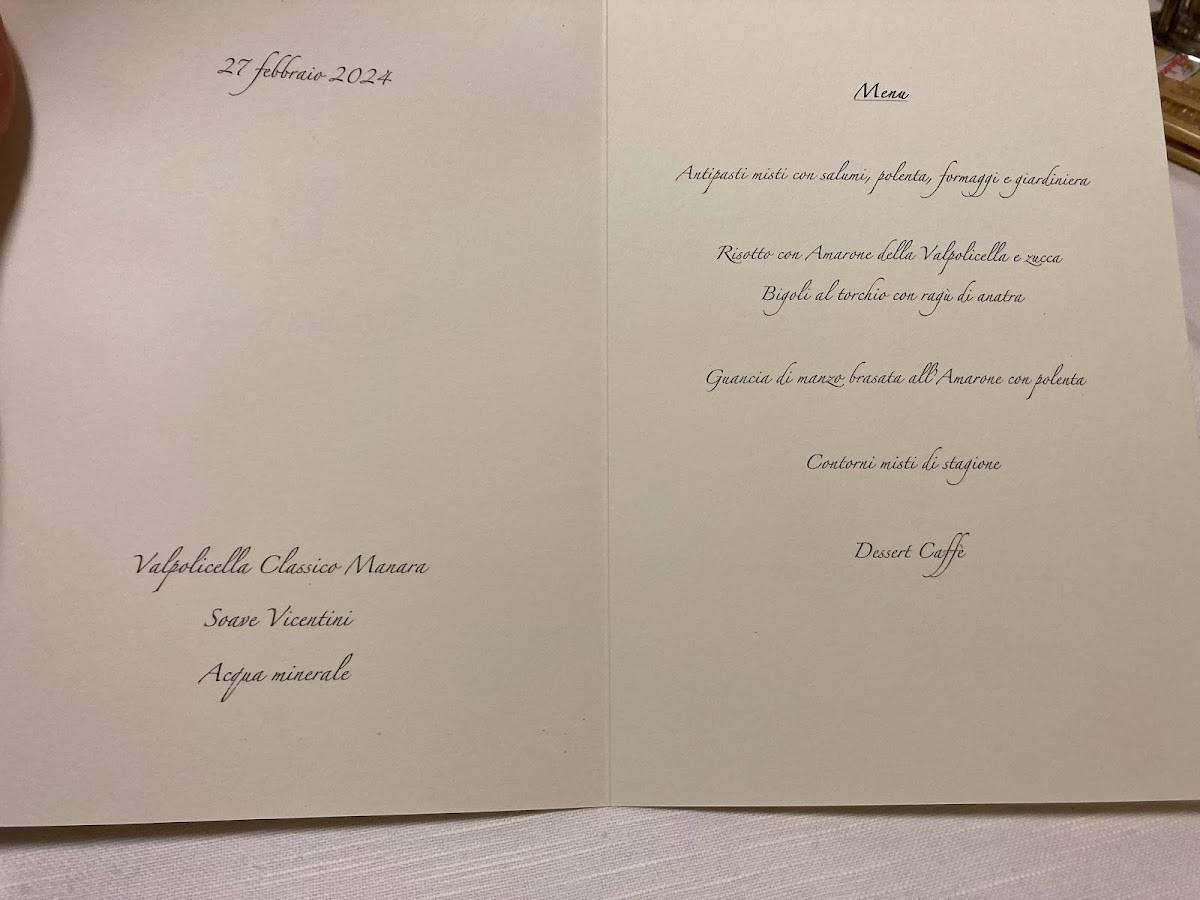 27 febbraio 2024
Valpolicella Classico Manara
Soave Vicentini
Acqua minerale
Menu
Antipasti misti con salumi, polenta, formaggi e giardiniera
Risotto con Amarone della Valpolicella e zucca
Bigoli al torchio con ragù di anatra
Guancia di manzo brasata all'Amarone con polenta
Contorni misti di stagione
Dessert Caffè